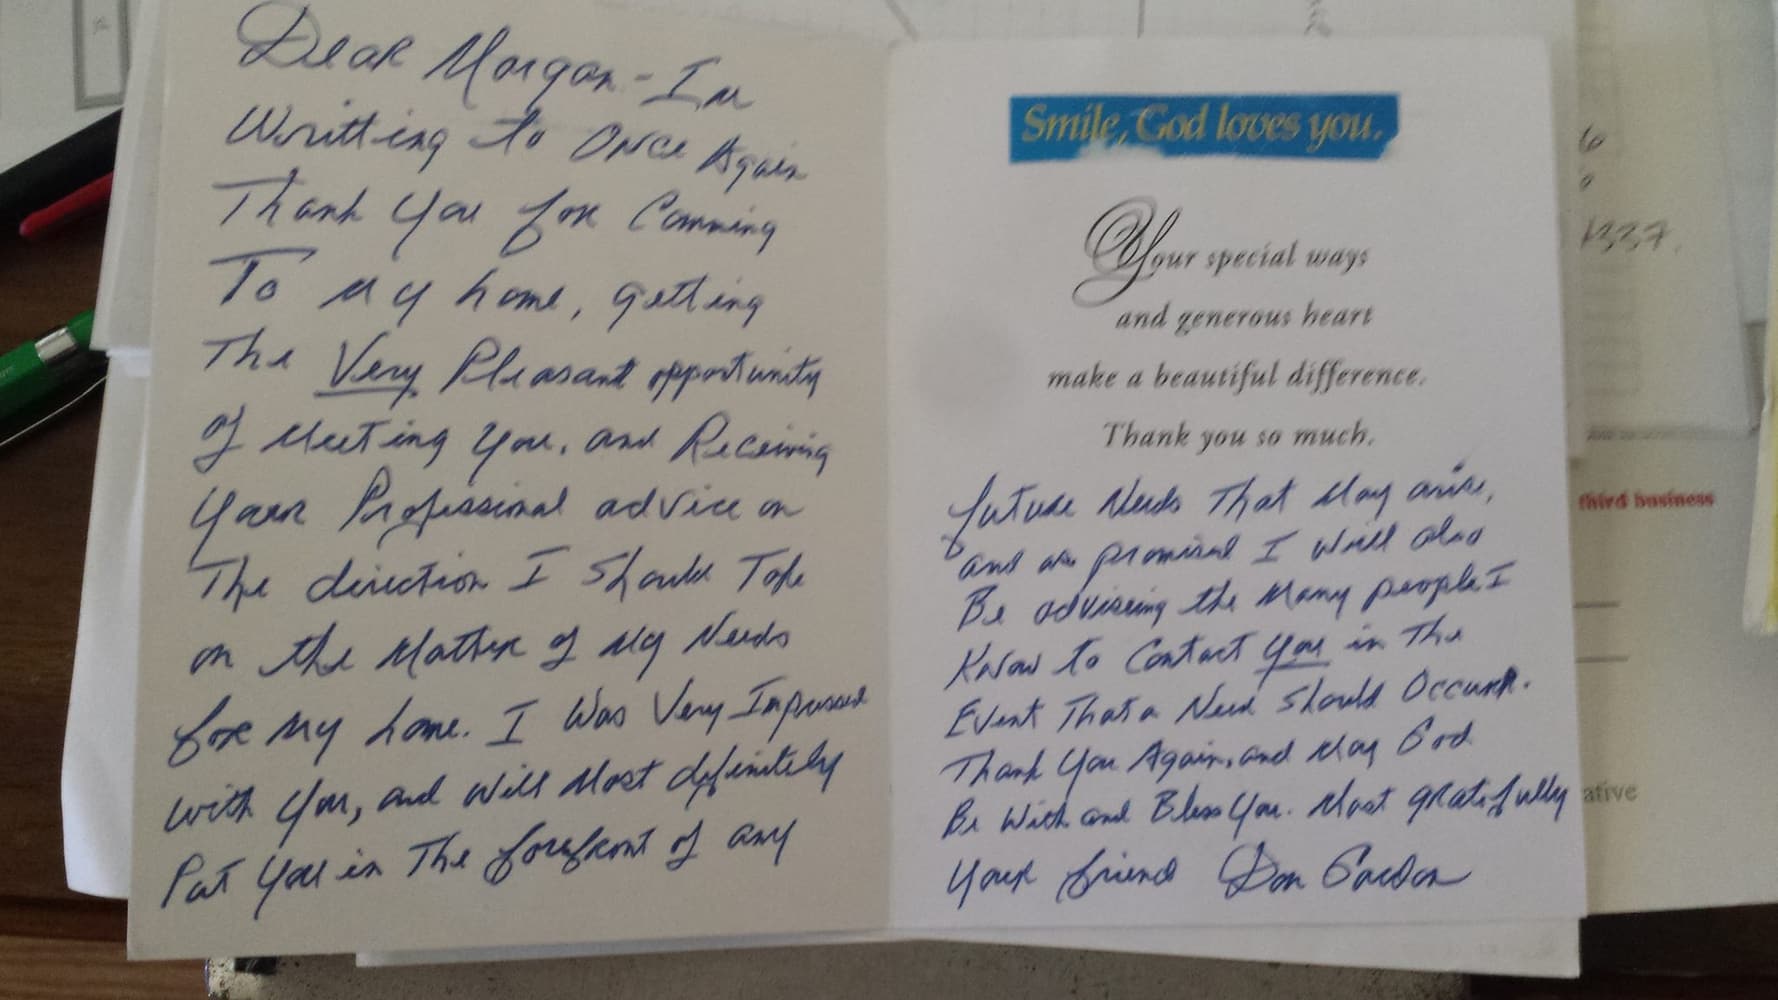 Dear Morgan - Im
Writting to Once Again
Thank You for Comming
To My home, getting
The Very Pleasant opportunity
of Meeting You, and Receiving
Your Professional advice on
The direction I Should Take
on the Matter of My Needs
for My home. I Was Very Impressed
with You, and Will Most definitely
Put You in The forefront of any
Smile, God loves you.
Your special ways
and generous heart
make a beautiful difference.
Thank you so much.
future Needs That May arise,
and as promised I Will also
Be adviseing the Many people I
Know to Contact You in The
Event That a Need Should Occurr.
Thank You Again, and May God
Be With and Bless You. Most gratifully
Your friend Don Gordon
1337.
third business
ative